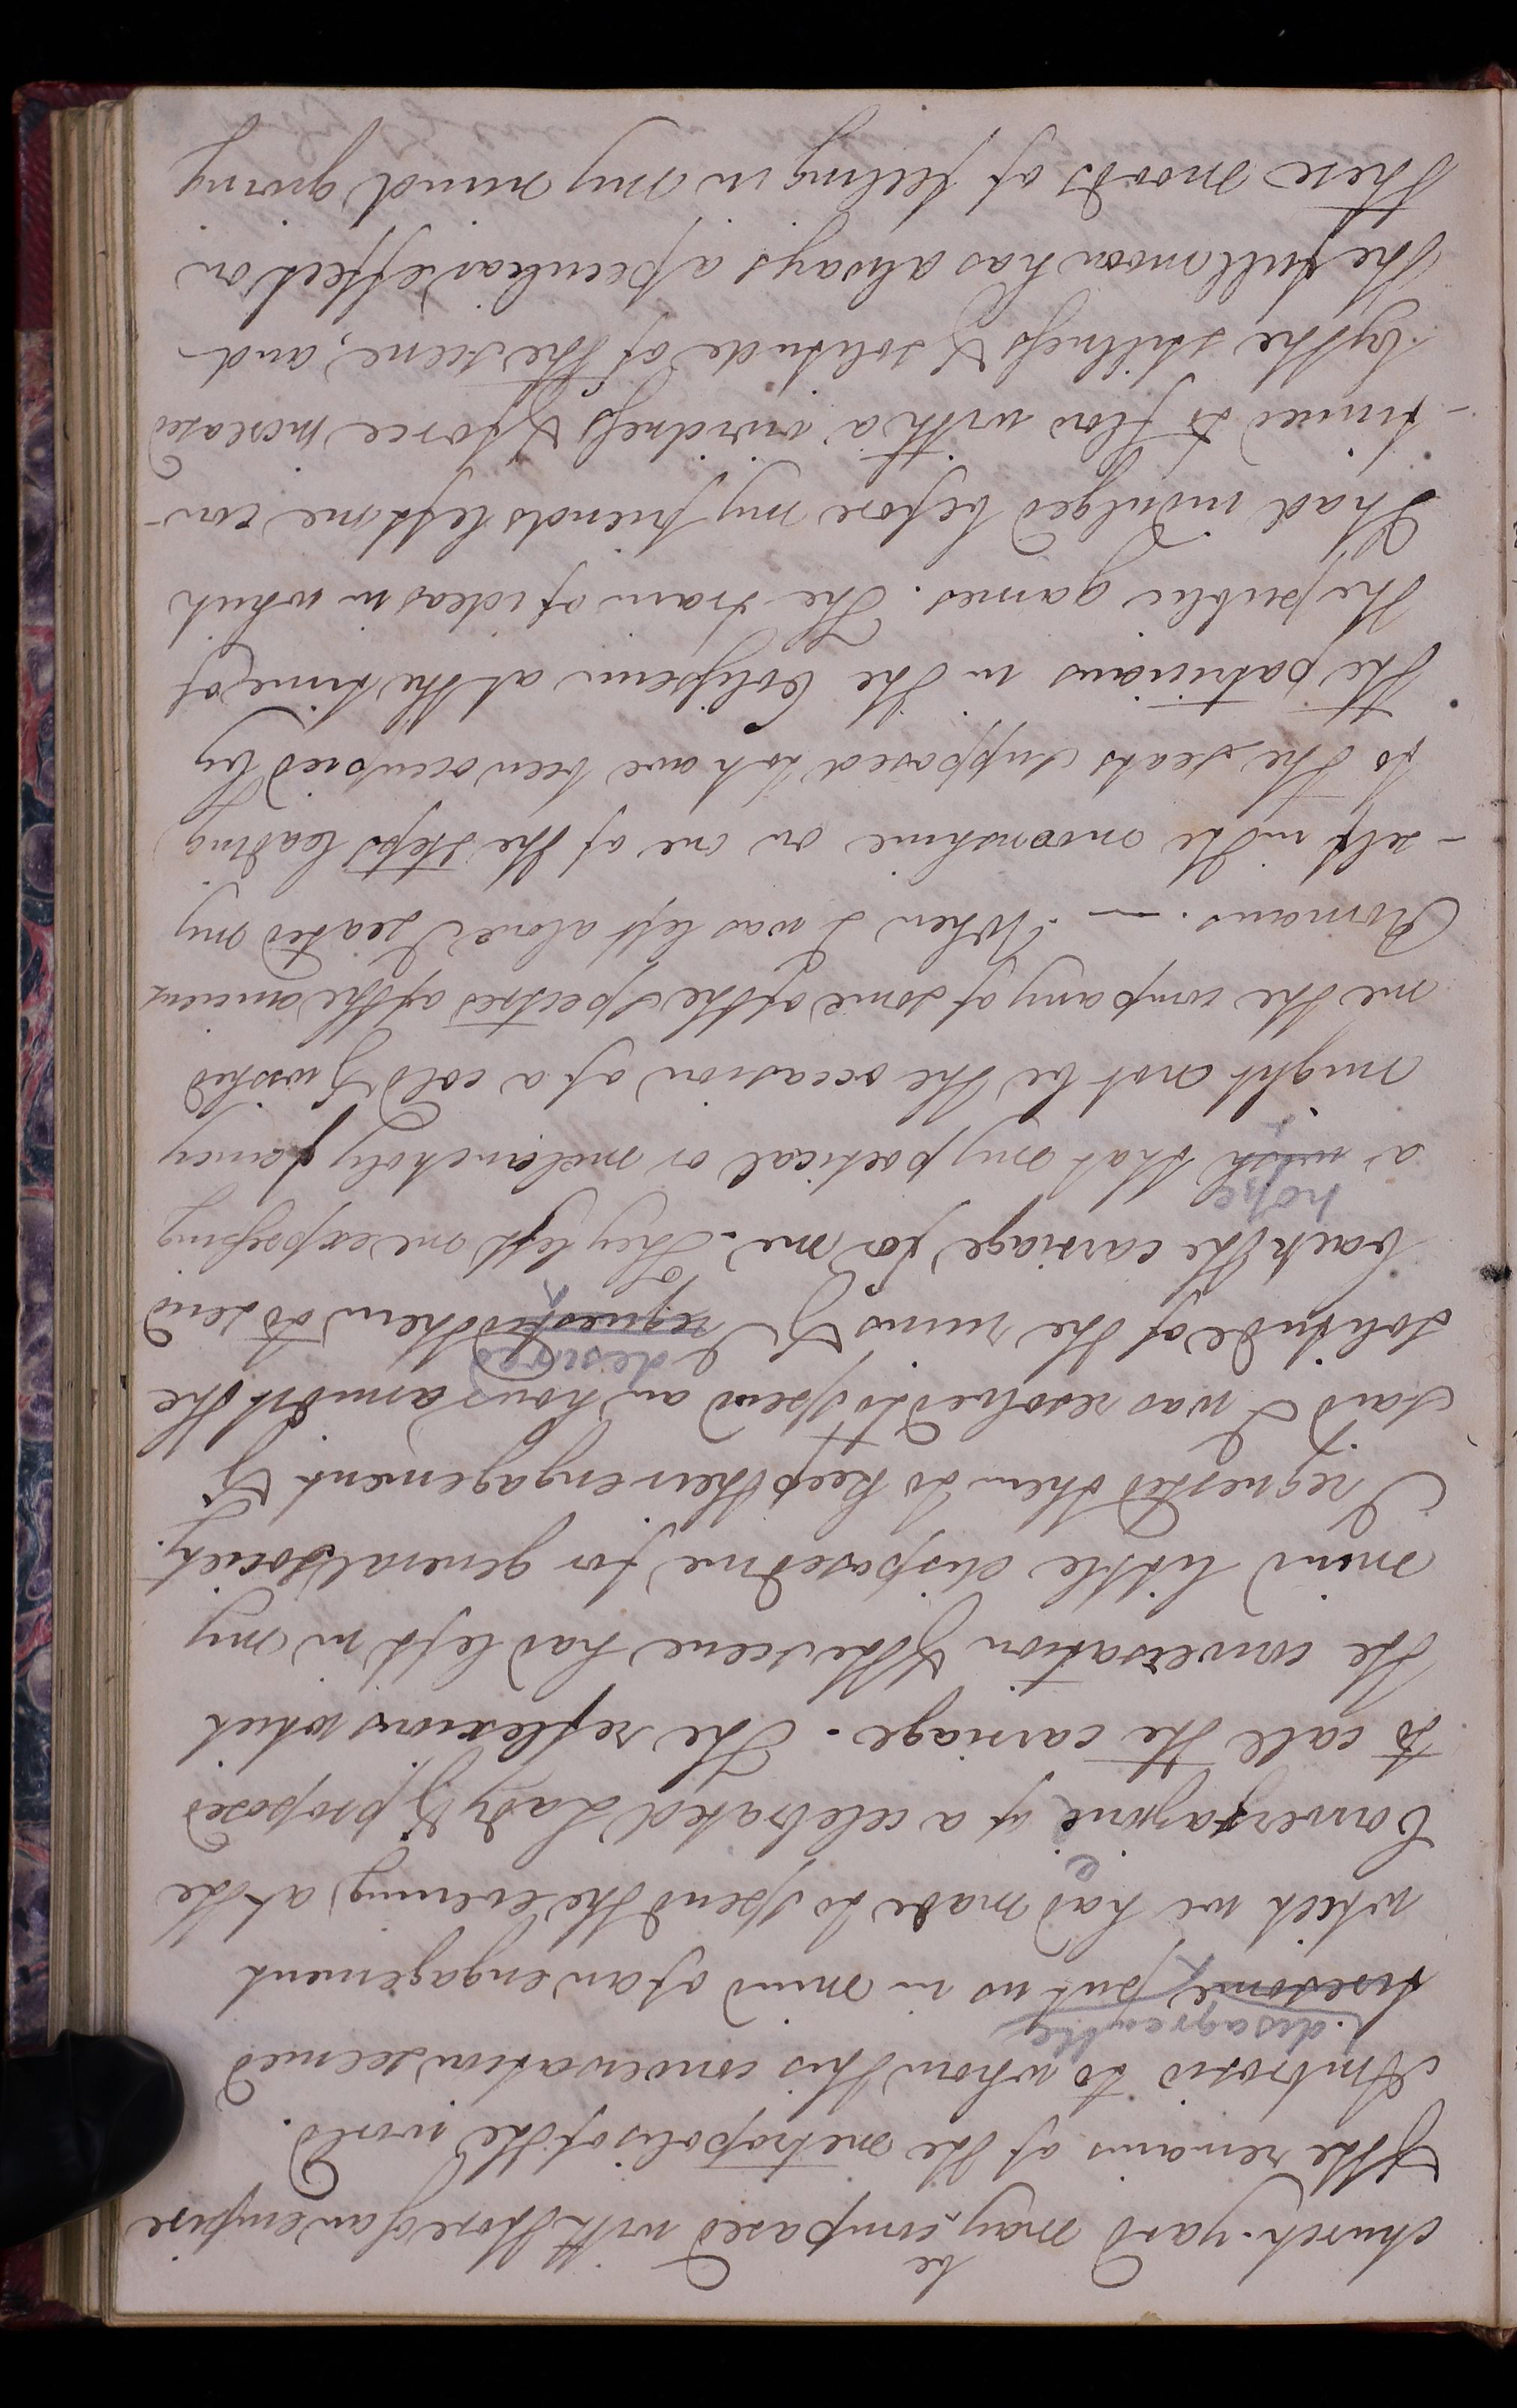 church-yard may be compared with those of an empire
& the remains of the metropolis of the world.
Ambrosio to whom this conversation seemed
disagreeable
tiresome put us in mind of an engagement
which we had made to spend the evening at the
Conversazione of a celebrated Lady & proposed
to call the carriage. The reflexions which
the conversation & the scene had left in my
mind little disposed me for general society.
I requested them to keep their engagement &
said I was resolved to spend an hour amidst the
desired
solitude of the ruins & requested them to send
back the carriage for me. They left me expressing
hope
a wish that my poetical or melancholy fancy
might not be the occasion of a cold & wished
me the company of some of the spectres of the ancient
Romans. — When I was left alone I seated my
-self in the moonshine on one of the steps leading
to the seats supposed to have been occupied by
the patricians in the Coliseum at the time of
the public games. The train of ideas in which
I had indulged before my friends left me con-
-tinued to flow with a vividness & force increased
by the stillness & solitude of the scene; and
the full moon has always a peculiar effect on
these moods of feeling in my mind giving